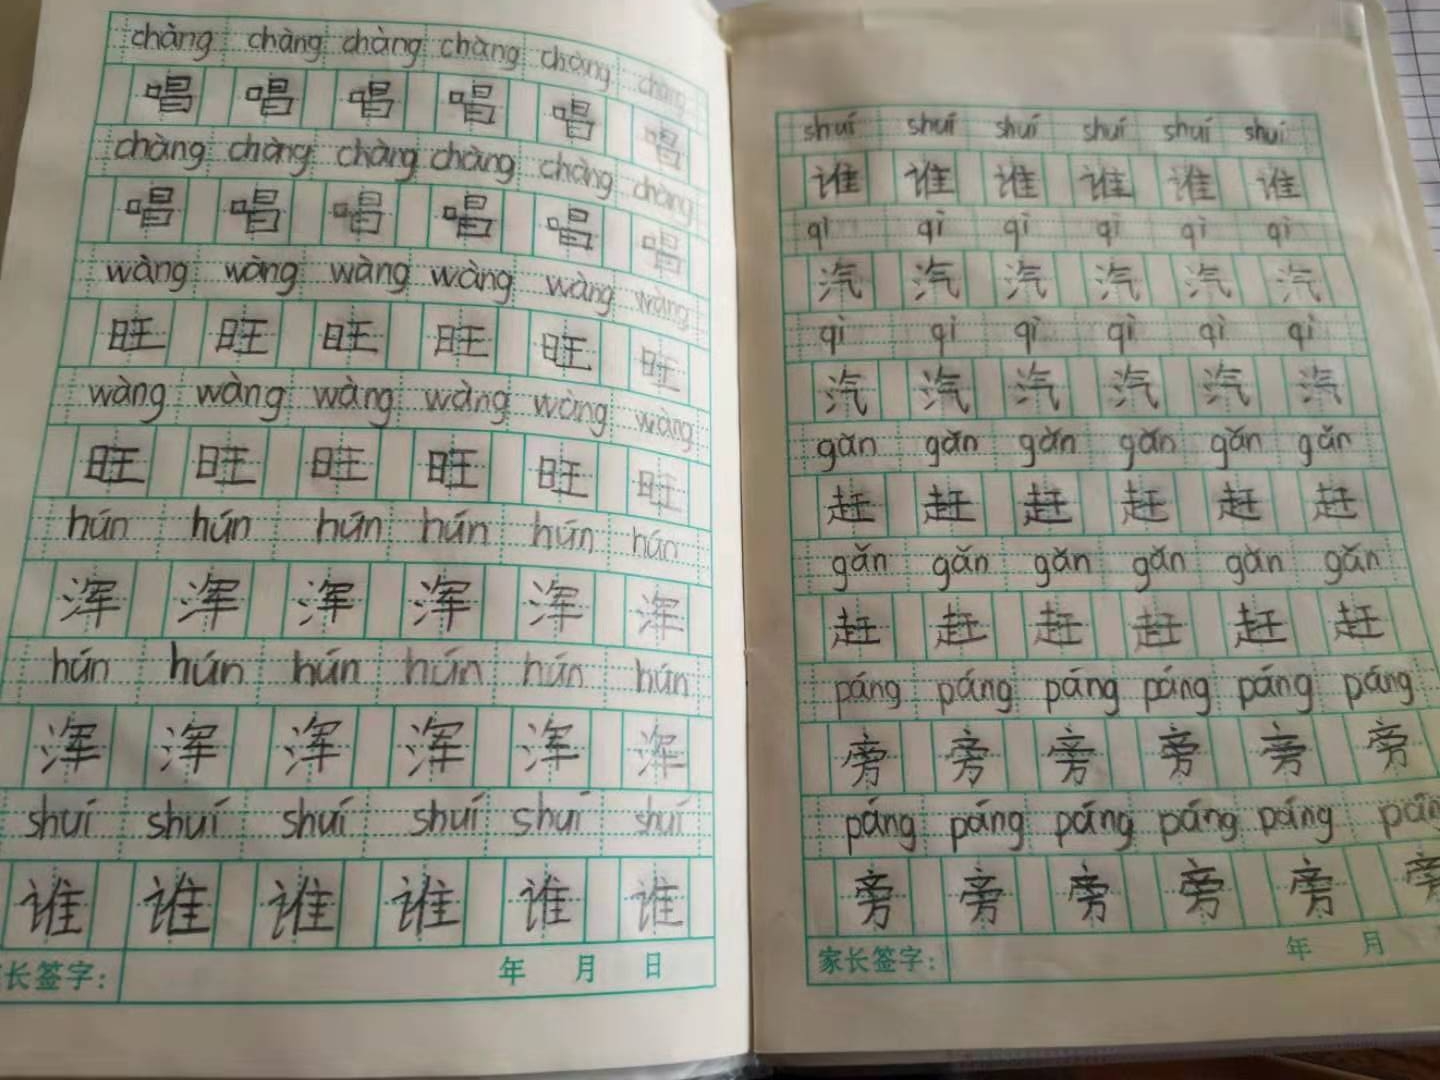 chàng chàng chàng chàng chàng chàng
唱 唱 唱 唱 唱 唱
chàng chàng chàng chàng chàng chàng
唱 唱 唱 唱 唱 唱
wàng wàng wàng wàng wàng wàng
旺 旺 旺 旺 旺 旺
wàng wàng wàng wàng wàng wàng
旺 旺 旺 旺 旺 旺
hún hún hún hún hún hún
浑 浑 浑 浑 浑 浑
hún hún hún hún hún hún
浑 浑 浑 浑 浑 浑
shuí shuí shuí shuí shuí shuí
谁 谁 谁 谁 谁 谁
长签字: 年 月 日
shuí shuí shuí shuí shuí shuí
谁 谁 谁 谁 谁 谁
qì qì qì qì qì qì
汽 汽 汽 汽 汽 汽
qì qì qì qì qì qì
汽 汽 汽 汽 汽 汽
gǎn gǎn gǎn gǎn gǎn gǎn
赶 赶 赶 赶 赶 赶
gǎn gǎn gǎn gǎn gǎn gǎn
赶 赶 赶 赶 赶 赶
páng páng páng páng páng páng
旁 旁 旁 旁 旁 旁
páng páng páng páng páng pán
旁 旁 旁 旁 旁 旁
家长签字: 年 月